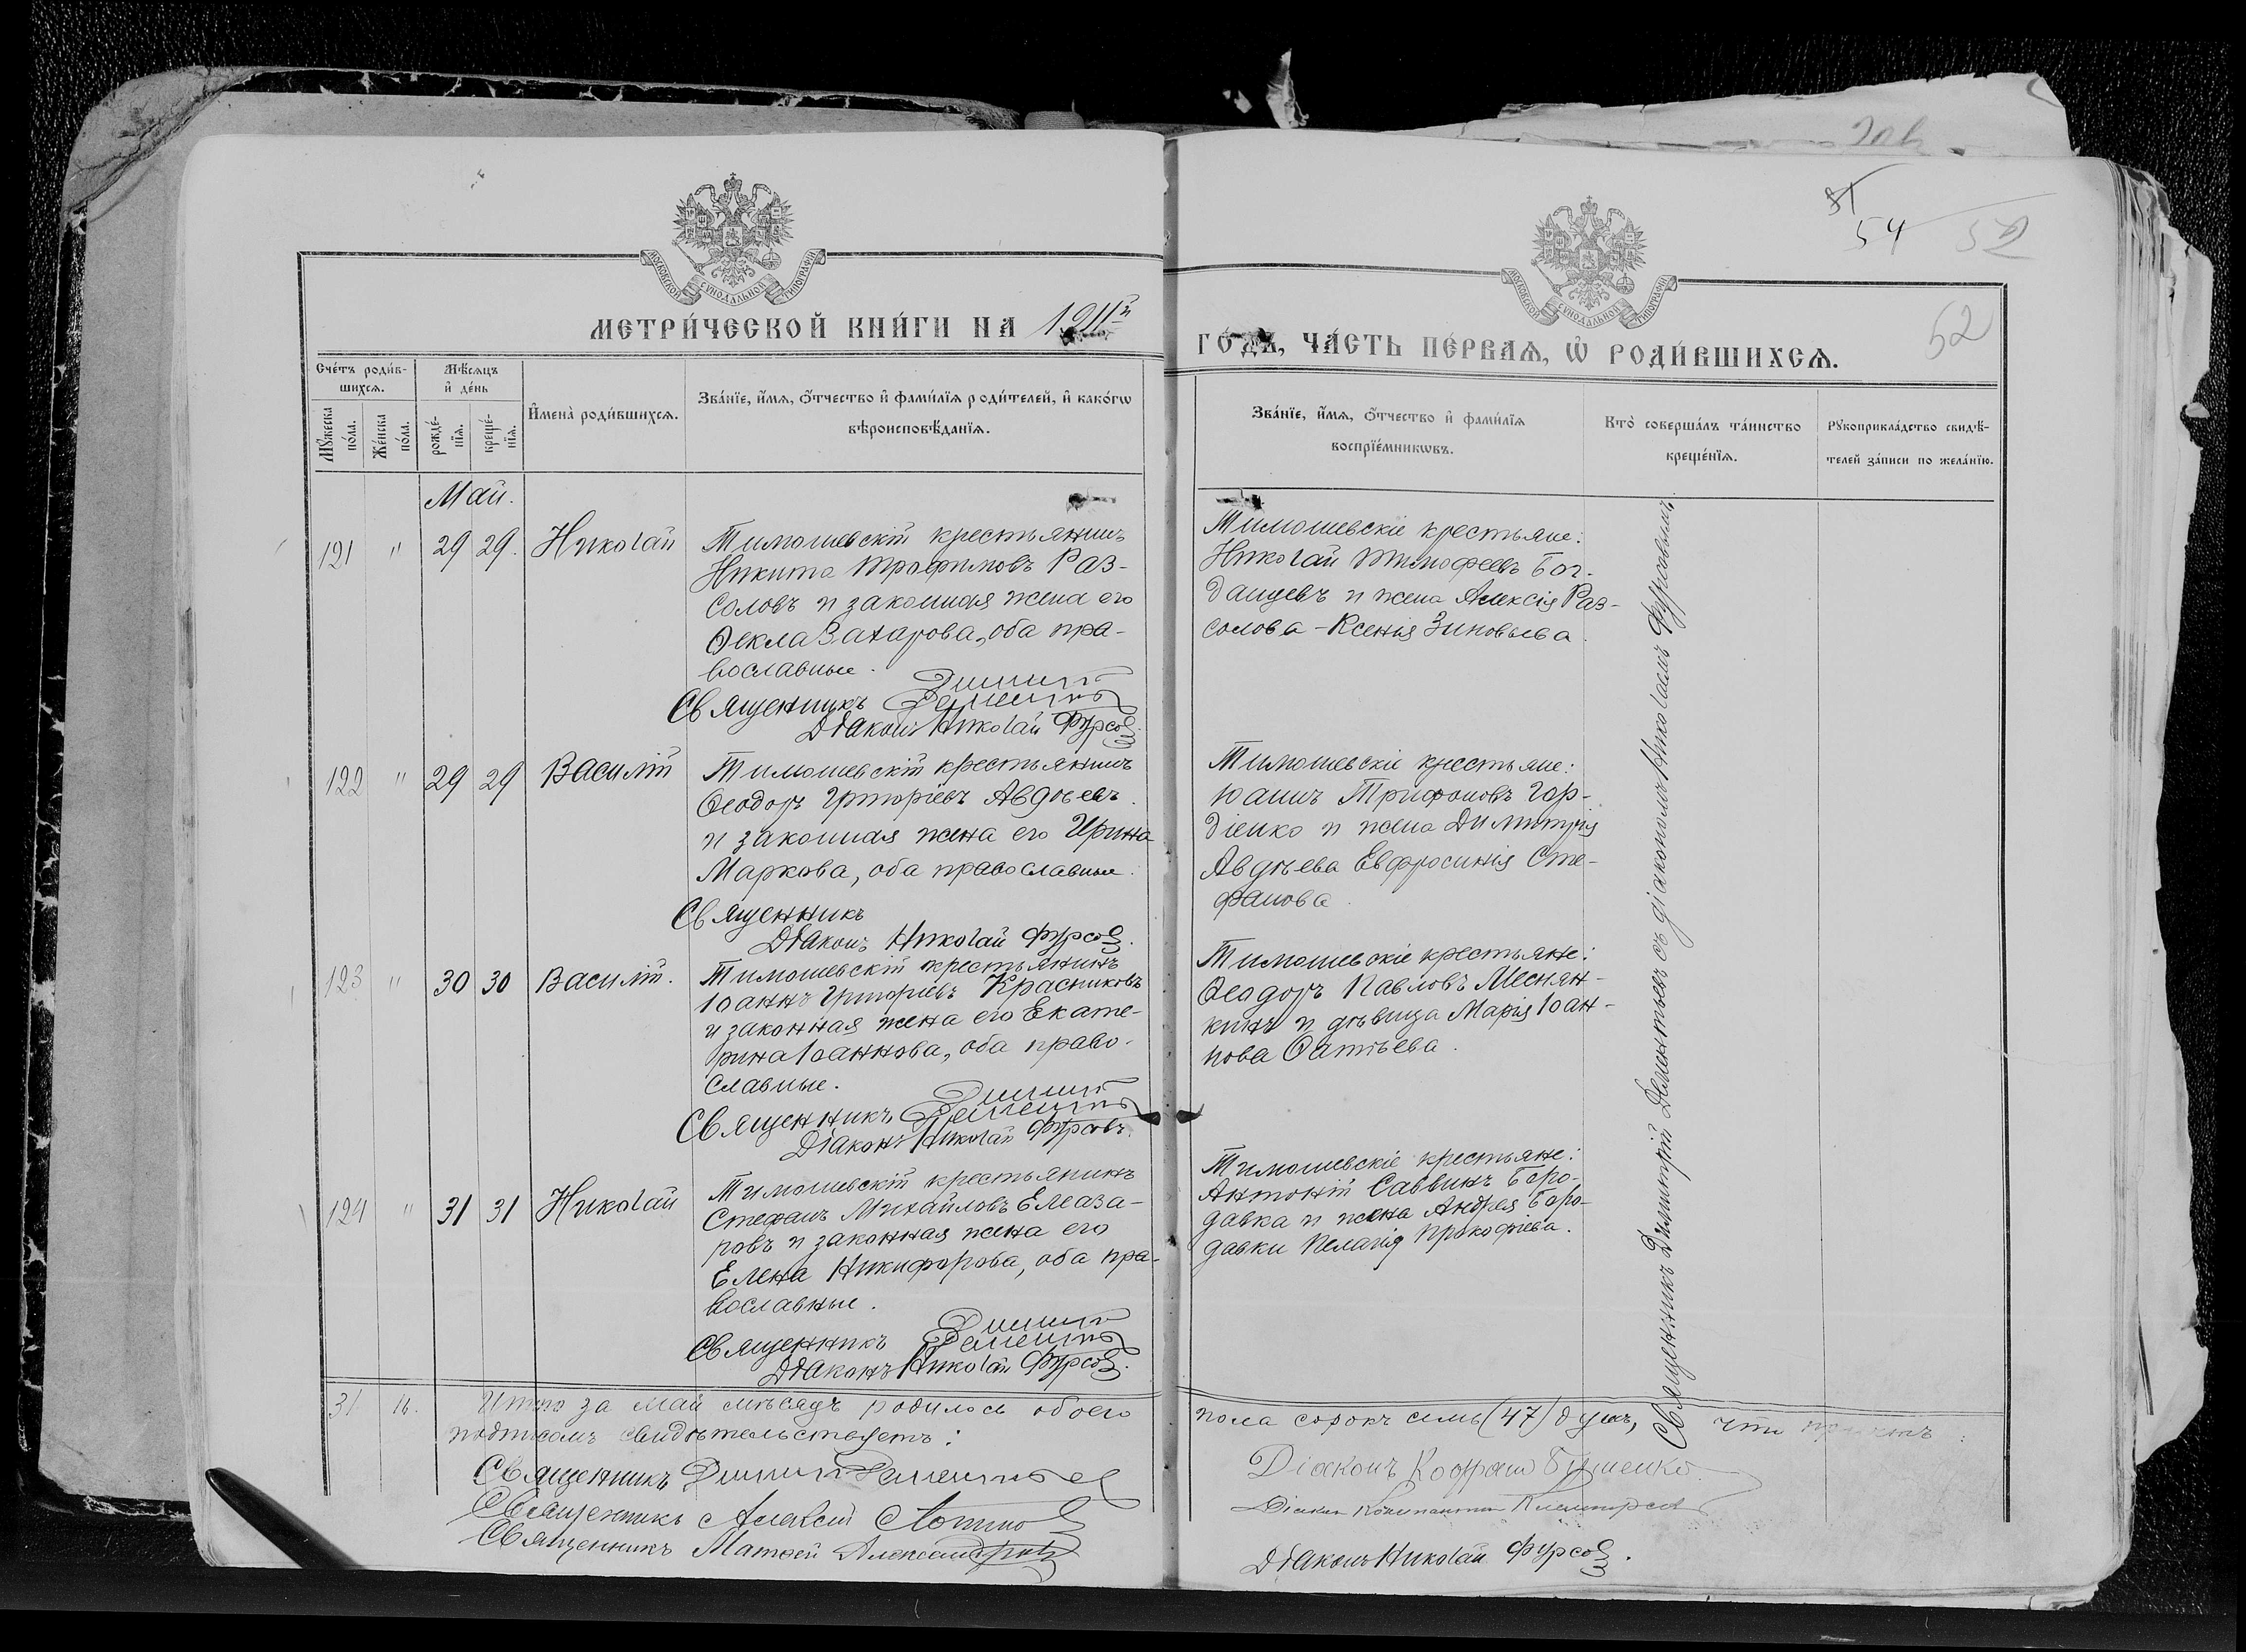 51
54
52
52
МОСКОВСКОЙ СѴНОДАЛЬНОЙ ТИПОГРАФІИ
МОСКОВСКОЙ СѴНОДАЛЬНОЙ ТИПОГРАФІИ
МЕТРИ́ЧЕСКОЙ КНИ́ГИ НА 1911й
ГО́ДЪ, ЧА́СТЬ ПЕ́РВАѦ, Ѡ҆ РОДИ́ВШИХСѦ.
Сче́тъ роди́в-
шихсѧ.
Мꙋ́жеска
по́ла.
Же́нска
по́ла.
Мѣ́сѧцъ
и҆ де́нь
рожде́-
нїѧ.
креще́-
нїѧ.
И҆мена̀ роди́вшихсѧ.
Зва́нїе, и҆́мѧ, ѻ҆́тчество и҆ фами́лїѧ роди́телей, и҆ како́гѡ
вѣроисповѣ́данїѧ.
Зва́нїе, и҆́мѧ, ѻ҆́тчество и҆ фами́лїѧ
воспрїе́мникѡвъ.
Кто̀ соверша́лъ та́инство
креще́нїѧ.
Рꙋкоприкла́дство свидѣ́-
телей за́писи по жела́нїю.
Май.
121 " 29 29. Николай
Тимошевскій крестьянинъ
Никита Трофимовъ Раз-
соловъ и законная жена его
Ѳекла Захарова, оба пра-
вославные.
Священникъ Димитрій
Дементьевъ
Діаконъ Николай Фурсовъ
Тимошевскіе крестьяне:
Николай Тимофеевъ Бог-
данцевъ и жена Алексія Раз-
солова - Ксенія Зиновьева.
122 " 29 29 Василій
Тимошевскій крестьянинъ
Ѳеодоръ Григоріевъ Авдѣевъ
и законная жена его Ирина
Маркова, оба православные.
Священникъ
Діаконъ Николай Фурсовъ.
Тимошевскіе крестьяне:
Іоаннъ Трифоновъ Гор-
діенко и жена Димитрія
Авдѣева Евфросинія Сте-
фанова.
123 " 30 30 Василій.
Тимошевскій крестьянинъ
Іоаннъ Григоріевъ Красниковъ
и законная жена его Екате-
рина Іоаннова, оба право-
славные.
Священникъ Димитрій
Дементьевъ
Діаконъ Николай Фурсовъ.
Тимошевскіе крестьяне:
Ѳеодоръ Павловъ Меснян-
кинъ и дѣвица Марія Іоан-
нова Фатѣева.
124 " 31 31 Николай
Тимошевскій крестьянинъ
Стефанъ Михайловъ Елеаза-
ровъ и законная жена его
Елена Никифорова, оба пра-
вославные.
Священникъ Димитрій
Дементьевъ
Діаконъ Николай Фурсовъ.
Тимошевскіе крестьяне:
Антоній Саввинъ Боро-
давка и жена Андрея Боро-
давки Пелагія Прокофіева.
Священникъ Димитрій Дементьевъ съ діакономъ Николаемъ Фурсовымъ
31 16. Итого за май мѣсяцъ родилось обоего
пола сорокъ семь (47) душъ, что причтъ
подписомъ свидѣтельствуетъ:
Священникъ Димитрій Дементьевъ
Священникъ Алексій
Священникъ Матѳей Александровъ
Діаконъ
Діаконъ Константинъ
Діаконъ Николай Фурсовъ.